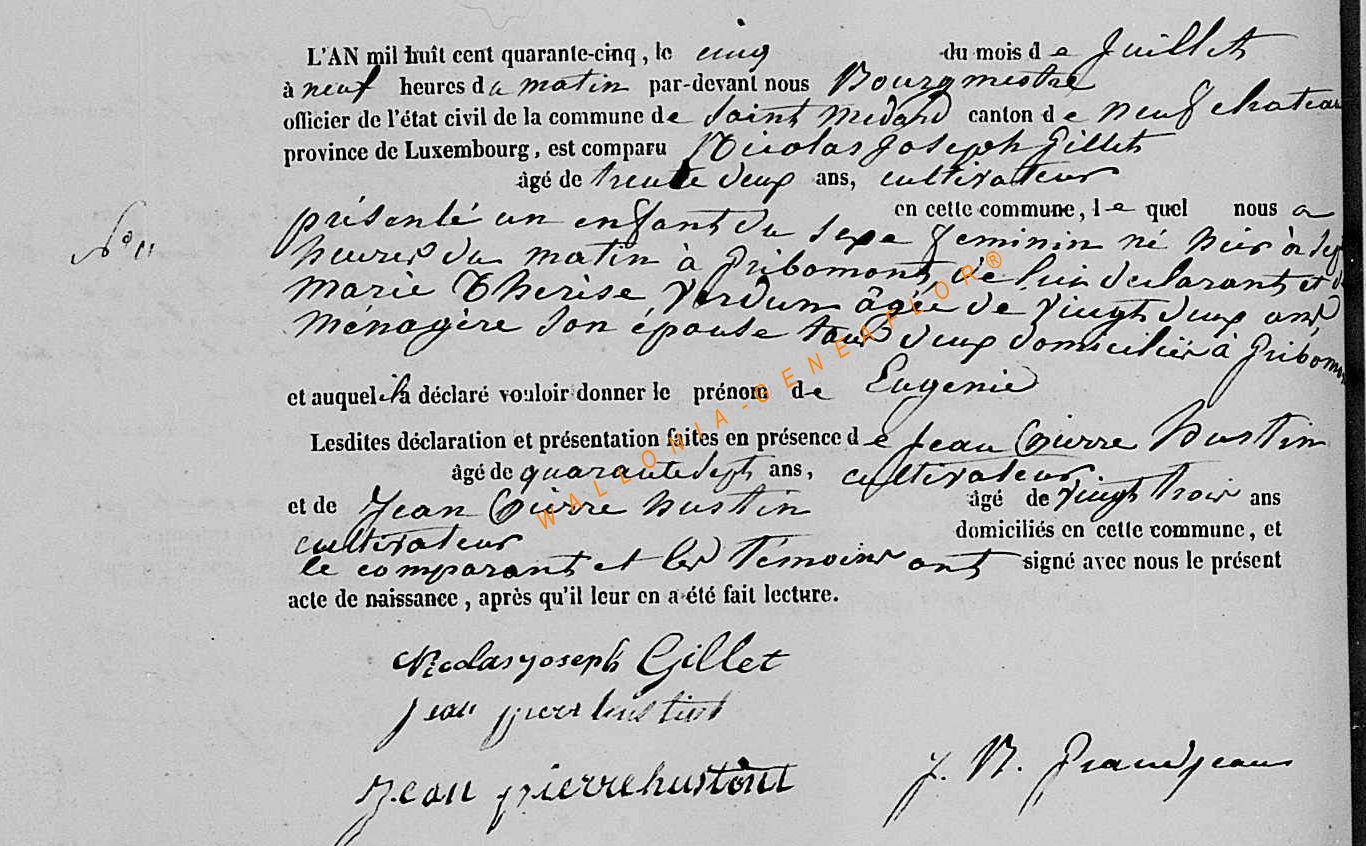 L'AN mil huit cent quarante-cinq, le cinq du mois de Juillet
à neuf heures du matin par-devant nous Bourgmestre
officier de l'état civil de la commune de Saint Medard canton de neufchateau
province de Luxembourg, est comparu Nicolas Joseph Gillet
âgé de trente deux ans, cultivateur
en cette commune, le quel nous a
N° 11
présenté un enfant du sexe feminin né hier à sept
heures du matin à Gribomont, de lui declarant et de
Marie Thérèse Verdun âgée de vingt deux ans
Ménagère son épouse tous deux domiciliés à Gribomont
et auquel il a déclaré vouloir donner le prénom de Eugenie
Lesdites déclaration et présentation faites en présence de Jean Pierre hustin
âgé de quarante sept ans, cultivateur
et de Jean Pierre hustin âgé de vingt trois ans
cultivateur domiciliés en cette commune, et
le comparant et les témoins ont signé avec nous le présent
acte de naissance, après qu'il leur en a été fait lecture.
Nicolas joseph Gillet
jean pierre hustint
Jean pierre hustint
J. N. Grandjean
WALLONIA-GENEAFLOR®